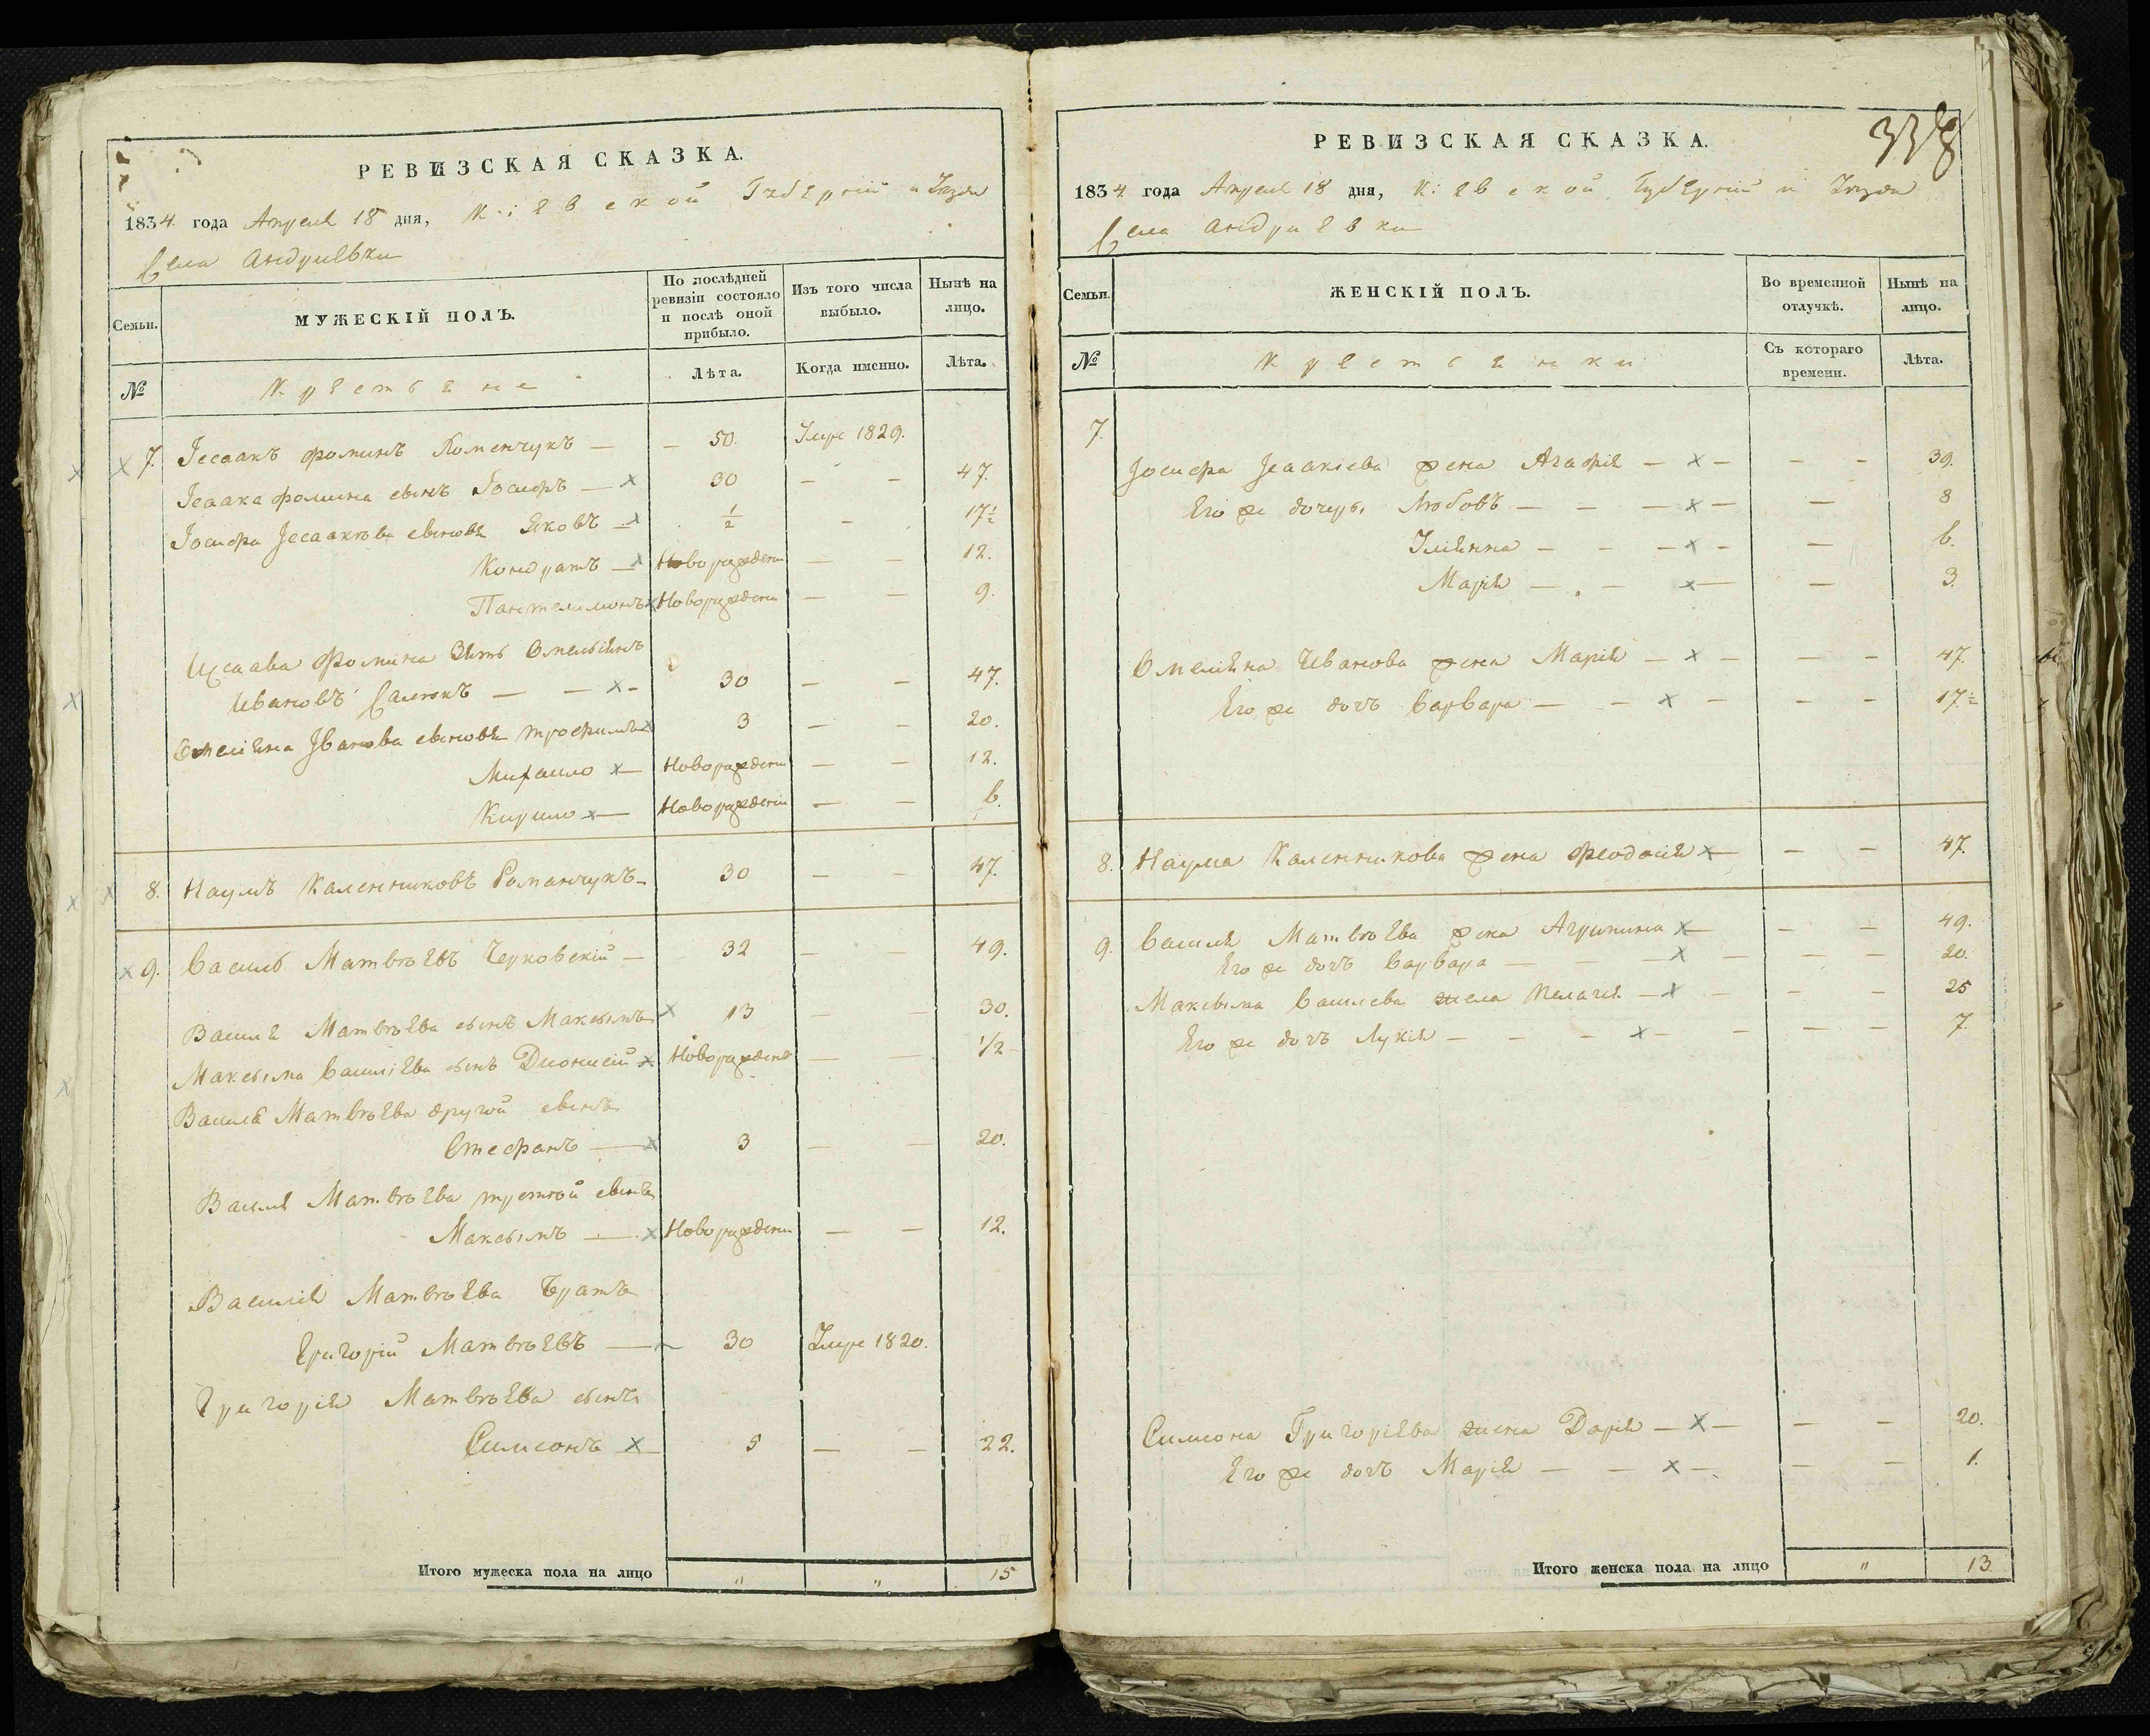 РЕВИЗСКАЯ СКАЗКА.
1834 года Апреля 18 дня, Кіевской Губерніи и Уезда
Села Андриевки
Семьи. МУЖЕСКІЙ ПОЛЪ. По послѣдней ревизіи состояло и послѣ оной прибыло. Изъ того числа выбыло. Нынѣ на лицо.
№ Крестьяне Лѣта. Когда именно. Лѣта.
7. Іссаакъ Фоминъ — 50. Умре 1829.
Ісаака Фомина сынъ Іосифъ — 30 — — 47.
Іосифа Іссакіева сыновья Яковъ — 1/2 — 17 1/2
Кондратъ — Новорожденъ — — 12.
Пантелимонъ Новорожденъ — — 9.
Фомина Зять Омельянъ
Ивановъ — — 30 — — 47.
Омеліяна Іванова сыновья Трофимъ 3 — — 20.
Михаило — Новорожденъ — — 12.
Кирило — Новорожденъ — — 6.
8. Наумъ Каленниковъ Романчукъ 30 — — 47.
9. Василь Матвѣевъ Черковскій — 32 — — 49.
Василя Матвѣева сынъ Максымъ 13 — — 30.
Максыма Василіева сынъ Дионисій Новорожденъ — — 1/2
Василя Матвѣева другой сынъ
Стефанъ — 3 — — 20.
Василя Матвѣева третой сынъ
Максымъ — Новорожденъ — — 12.
Василія Матвѣева братъ
Григорій Матвѣевъ — 30 Умре 1820.
Григорія Матвѣева сынъ
Симеонъ 5 — — 22.
Итого мужеска пола на лицо " " 15
338
РЕВИЗСКАЯ СКАЗКА.
1834 года Апреля 18 дня, Кіевской Губерніи и Уезда
Села Андриевки
Семьи. ЖЕНСКІЙ ПОЛЪ. Во временной отлучкѣ. Нынѣ на лицо.
№ Крестьянки Съ котораго времени. Лѣта.
7.
Іосифа Ісаакіева жена Агафія — — — — 39.
Его же дочеры Любовъ — — — — — 8
Уліянна — — — — — 6.
Марія — — — — 3.
Омеляна Иванова жена Марія — — — — 47.
Его же дочъ Варвара — — — — — 17 1/2
8. Наума Каленникова жена Феодосія — — — 47.
9. Василя Матвѣева жена Агрипина — — — 49.
Его же дочъ Варвара — — — — — — 20.
Максыма Василева жена Пелагія — — — — 25
Его же дочъ Лукія — — — — — — — 7.
Симеона Григоріева жена Дарія — — — — 20.
Его же дочъ Марія — — — — — 1.
Итого женска пола на лицо " 13.